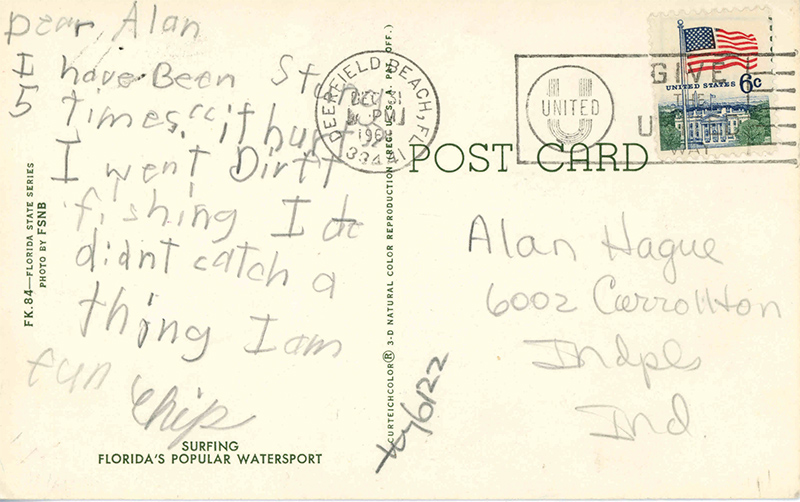 Dear Alan
I have Been Stung
5 times "it hurt
I went Dirft
fishing I
didnt catch a
thing I am
fun
Chip
SURFING
FLORIDA'S POPULAR WATERSPORT
FK.84—FLORIDA STATE SERIES
PHOTO BY FSNB
CURTEICHCOLOR® 3-D NATURAL COLOR REPRODUCTION (REG. U.S.A. PAT. OFF.)
DEERFIELD BEACH, FL
DEC
PM
33441
UNITED
GIVE
UNITED STATES 6c
WAY
POST CARD
Alan Hague
6002 Carrollton
Indpls
Ind.
6122